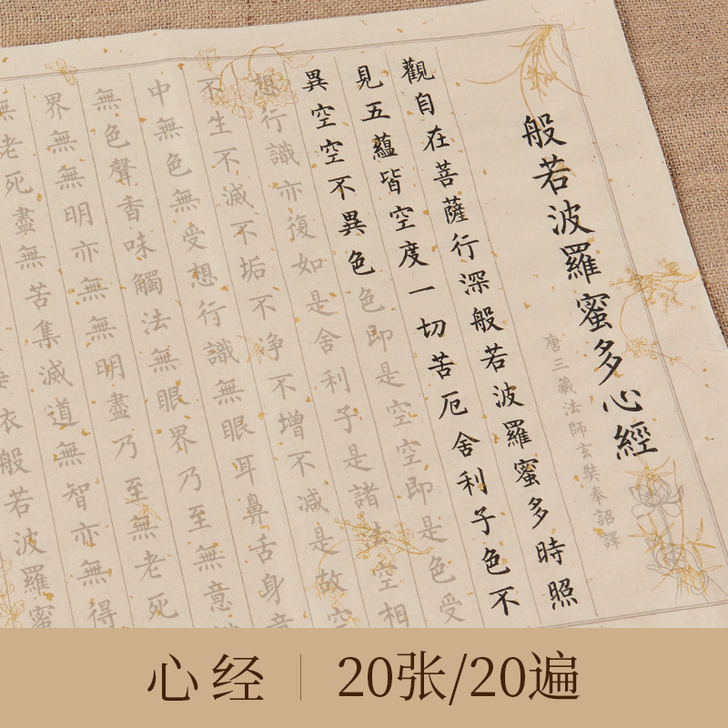 般若波羅蜜多心經
唐三藏法師玄奘奉詔譯
觀自在菩薩行深般若波羅蜜多時照
見五蘊皆空度一切苦厄舍利子色不
異空空不異色色即是空空即是色受
想行識亦復如是舍利子是諸法空相
不生不滅不垢不淨不增不減是故空
中無色無受想行識無眼耳鼻舌身意
無色聲香味觸法無眼界乃至無意
界無無明亦無無明盡乃至無老死
無老死盡無苦集滅道無智亦無得
般若波羅蜜
心经
20张/20遍